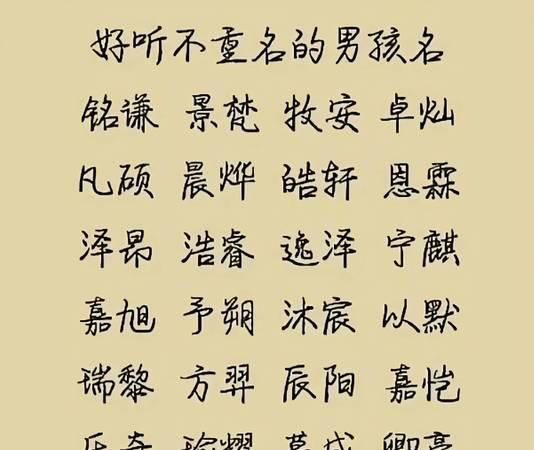 好听不重名的男孩名
铭谦 景梵 牧安 卓灿
凡硕 晨烨 皓轩 恩霖
泽昂 浩睿 逸泽 宁麒
嘉旭 予朔 沐宸 以默
瑞黎 方羿 辰阳 嘉恺